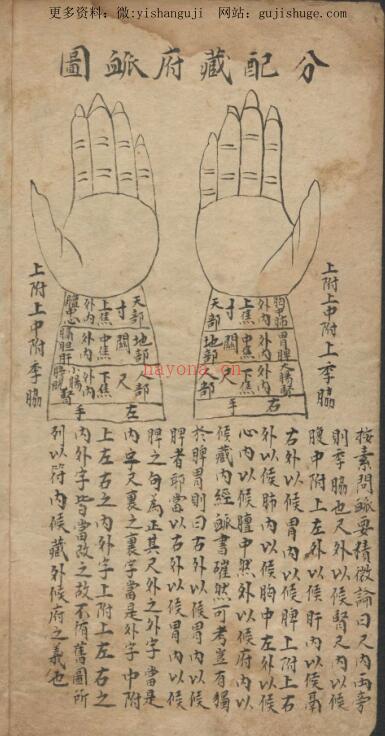 更多资料：微:yishanguji 网站：gujishuge.com
分配藏府衇圖
上附上中附上季脇
胸中肺 外內 上焦 寸 天部
胃脾 外內 中焦 關 地部
大腸腎 外內 尺 人部
右手
天部 寸 上焦 外內 膻中心
地部 關 中焦 外內 膽肝
人部 尺 下焦 外內 小腸膀胱腎
左手
上附上中附季脇
hayona.cn
按素問衇要精微論曰尺內兩旁
則季脇也尺外以候腎尺內以候
腹中附上左外以候肝內以候鬲
右外以候胃內以候脾上附上右
外以候肺內以候胸中左外以候
心內以候膻中然外以候府內以
候藏內經衇書確然可考豈有獨
於脾胃則曰右外以候胃內以候
脾者耶當以右外以候胃內以候
脾之句為正其尺外之外字當是
內字尺裏之裏字當是外字中附
上左右之內外字上附上左右之
內外字皆當改之故不循舊圖所
列以符內候藏外候府之義也